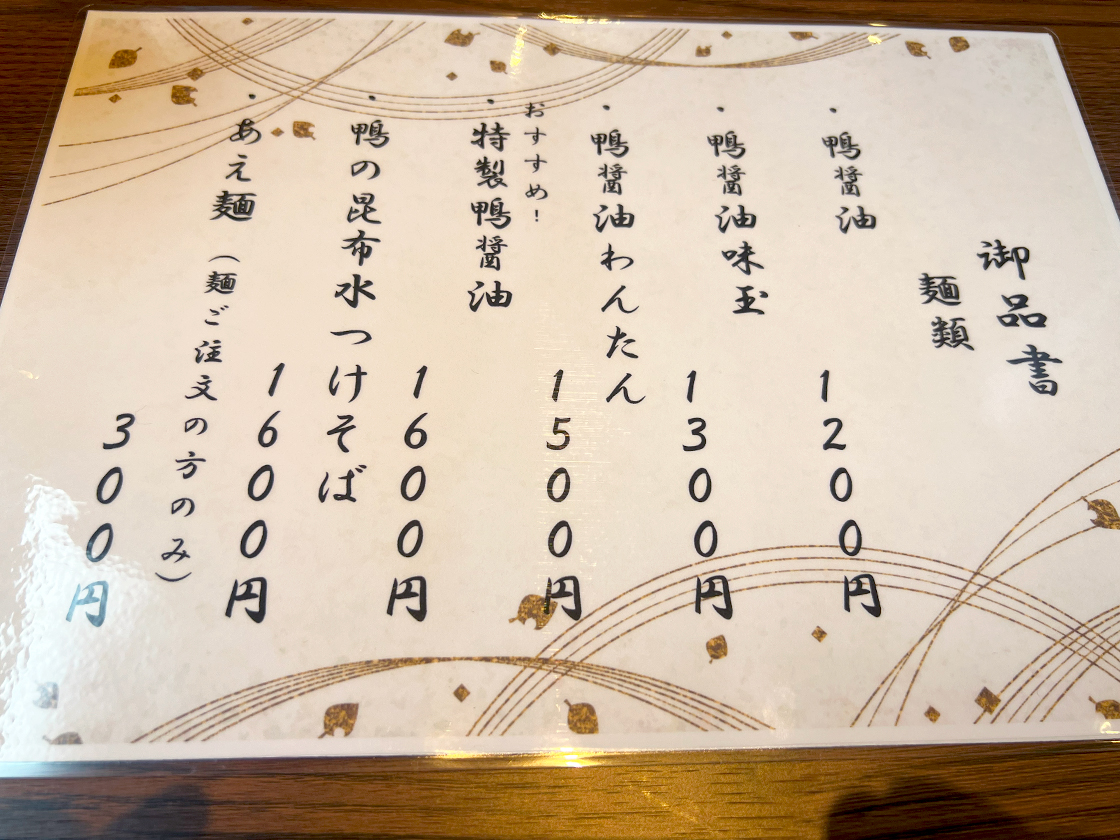 御品書
麺類
・鴨醤油
1200円
・鴨醤油味玉
1300円
・鴨醤油わんたん
1500円
おすすめ！
・特製鴨醤油
1600円
・鴨の昆布水つけそば
1600円
・あえ麺（麺ご注文の方のみ）
300円